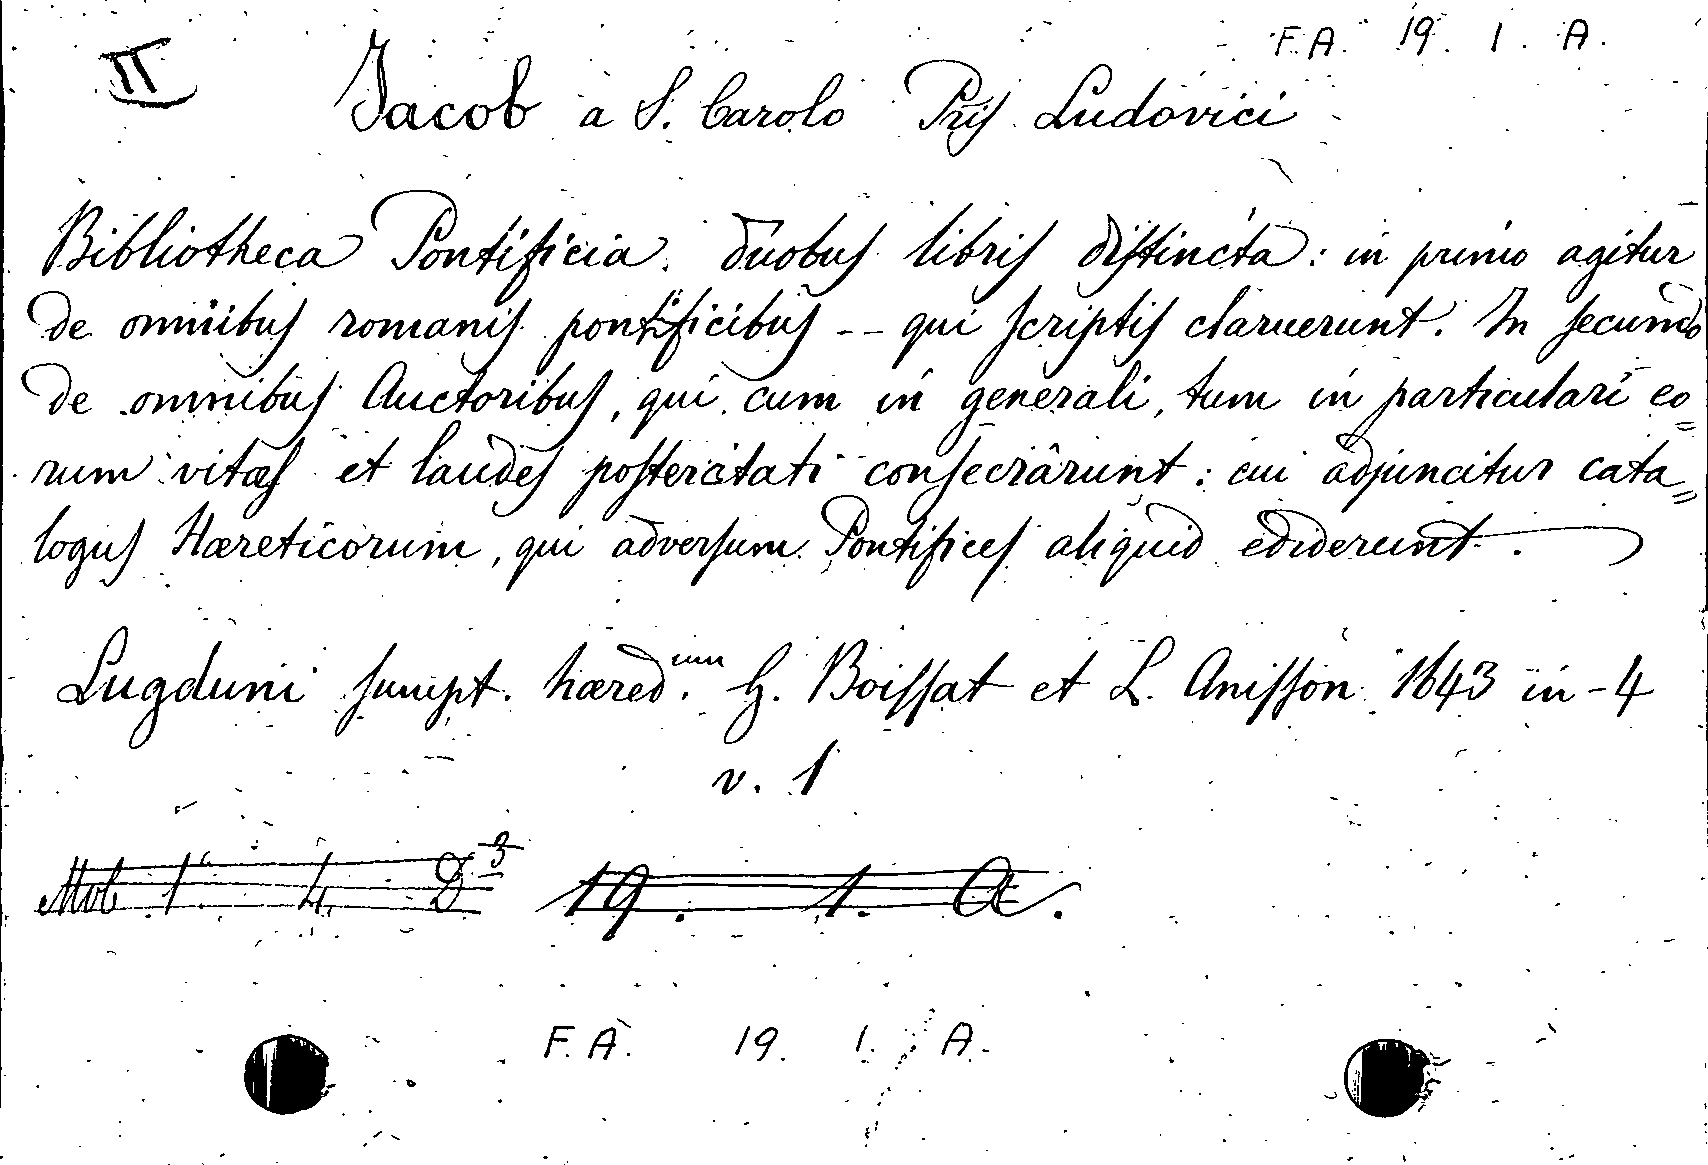 F.A. 19. 1. A.
II
Jacob a S. Carolo Pris Ludovici
Bibliotheca Pontificia. duobus libris distincta: in primo agitur
de omnibus romanis pontificibus -- qui scriptis claruerunt. In secundo
de omnibus Auctoribus, qui cum in generali, tum in particulari eo=
rum vitas et laudes posteritati consecrârunt: cui adjuncitur cata=
logus Hæreticorum, qui adversum Pontifices aliquid ediderunt.
Lugduni sumpt. hæred.um G. Boissat et L. Anisson 1643 in-4
v. 1
Mob 1. 4. D3 19. 1. A.
F.A. 19. 1. A.